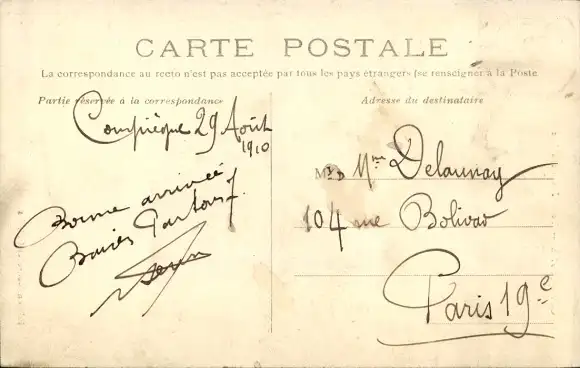 CARTE POSTALE
La correspondance au recto n'est pas acceptée par tous les pays étrangers (se renseigner à la Poste
Partie réservée à la correspondance
Adresse du destinataire
Compiègne 29 Août
1910
Bonne arrivée
Baisers Partout
M Mme Delaunay
104 rue Bolivar
Paris 19e